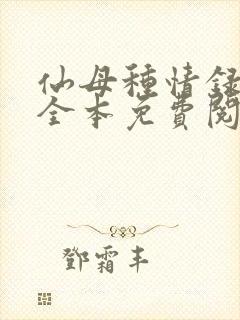 仙母種情録
全本免費閱
鄧霜丰